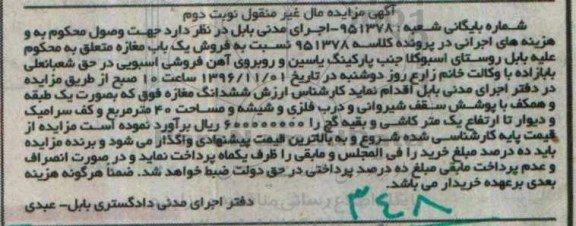 آگهی مزایده مال غیر منقول نوبت دوم
شماره بایگانی شعبه: ۹۵۱۳۷۸-اجرای مدنی بابل در نظر دارد جهت وصول محکوم به و
هزینه های اجرائی در پرونده کلاسه ۹۵۱۳۷۸ نسبت به فروش یک باب مغازه متعلق به محکوم
علیه بابل روستای اسبوکلا جنب پارکینگ یاسین و روبروی آهن فروشی اسبویی در حق شعبانعلی
بابازاده با وکالت خانم زارع روز دوشنبه در تاریخ ۱۳۹۶/۱۱/۰۱ ساعت ۱۰ صبح از طریق مزایده
در دفتر اجرای مدنی بابل اقدام نماید کارشناس ارزش ششدانگ مغازه فوق که بصورت یک طبقه
و همکف با پوشش سقف شیروانی و درب فلزی و شیشه و مساحت ۴۰ مترمربع و کف سرامیک
و دیوار تا ارتفاع یک متر کاشی و بقیه گچ را ۶۰۰۰۰۰۰۰۰ ریال برآورد نموده است مزایده از
قیمت پایه کارشناسی شده شروع و به بالاترین قیمت پیشنهادی واگذار می شود و برنده مزایده
باید ده درصد مبلغ خرید را فی المجلس و مابقی را ظرف یکماه پرداخت نماید و در صورت انصراف
و عدم پرداخت مابقی مبلغ ده درصد پرداختی در حق دولت ضبط خواهد شد. ضمناً هرگونه هزینه
بعدی برعهده خریدار می باشد.
دفتر اجرای مدنی دادگستری بابل- عبدی
۳۴۸